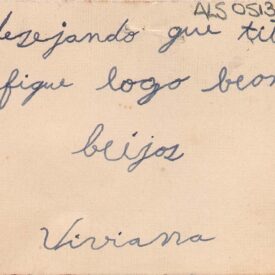 ALS 0513
desejando que ti
fique logo beom
beijos
Viviana